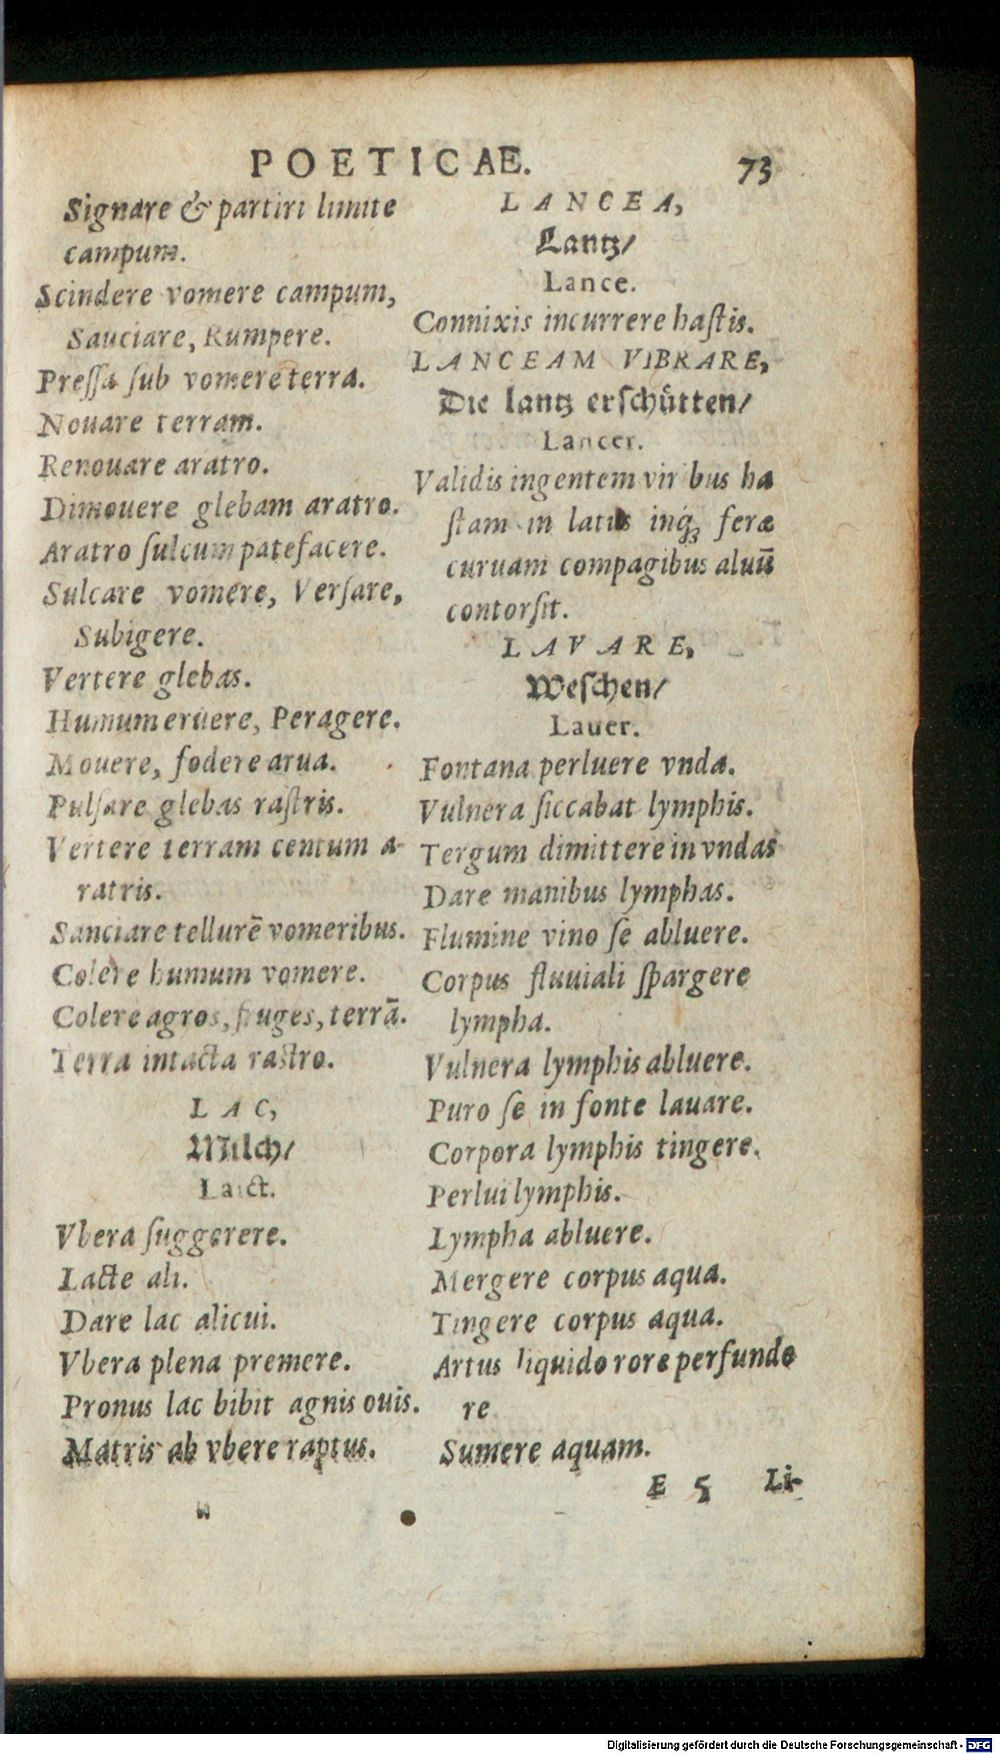 POETICAE.
73
Signare & partiri limite
campum.
Scindere vomere campum,
Sauciare, Rumpere.
Pressa sub vomere terra.
Nouare terram.
Renouare aratro.
Dimouere glebam aratro.
Aratro sulcum patefacere.
Sulcare vomere, Versare,
Subigere.
Vertere glebas.
Humum eruere, Peragere.
Mouere, fodere arua.
Pulsare glebas rastris.
Vertere terram centum a-
ratris.
Sanciare tellurē vomeribus.
Colere humum vomere.
Colere agros, fruges, terrā.
Terra intacta rastro.
LAC,
Milch/
Laict.
Vbera suggerere.
Lacte ali.
Dare lac alicui.
Vbera plena premere.
Pronus lac bibit agnis ouis.
Matris ab vbere raptus.
LANCEA,
Lantz/
Lance.
Connixis incurrere hastis.
LANCEAM VIBRARE,
Die lantz erschütten/
Lancer.
Validis ingentem viribus ha
stam in latus inq́ꝫ feræ
curuam compagibus aluū
contorsit.
LAVARE,
Weschen/
Lauer.
Fontana perluere vnda.
Vulnera siccabat lymphis.
Tergum dimittere in vndas
Dare manibus lymphas.
Flumine vino se abluere.
Corpus fluuiali spargere
lympha.
Vulnera lymphis abluere.
Puro se in fonte lauare.
Corpora lymphis tingere.
Perlui lymphis.
Lympha abluere.
Mergere corpus aqua.
Tingere corpus aqua.
Artus liquido rore perfunde
re
Sumere aquam.
E 5 Li-
Digitalisierung gefördert durch die Deutsche Forschungsgemeinschaft - DFG